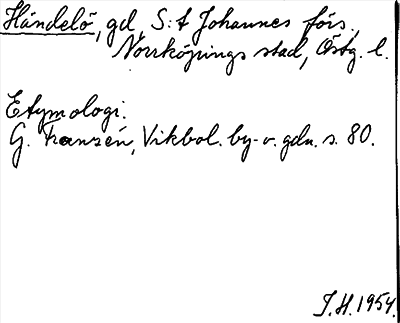 Händelö, gd, S:t Johannes förs.,
Norrköpings stad, Östg. l.
Etymologi.
G. Franzén, Vikbol. by- o. gdn. s. 80.
I.H. 1954.